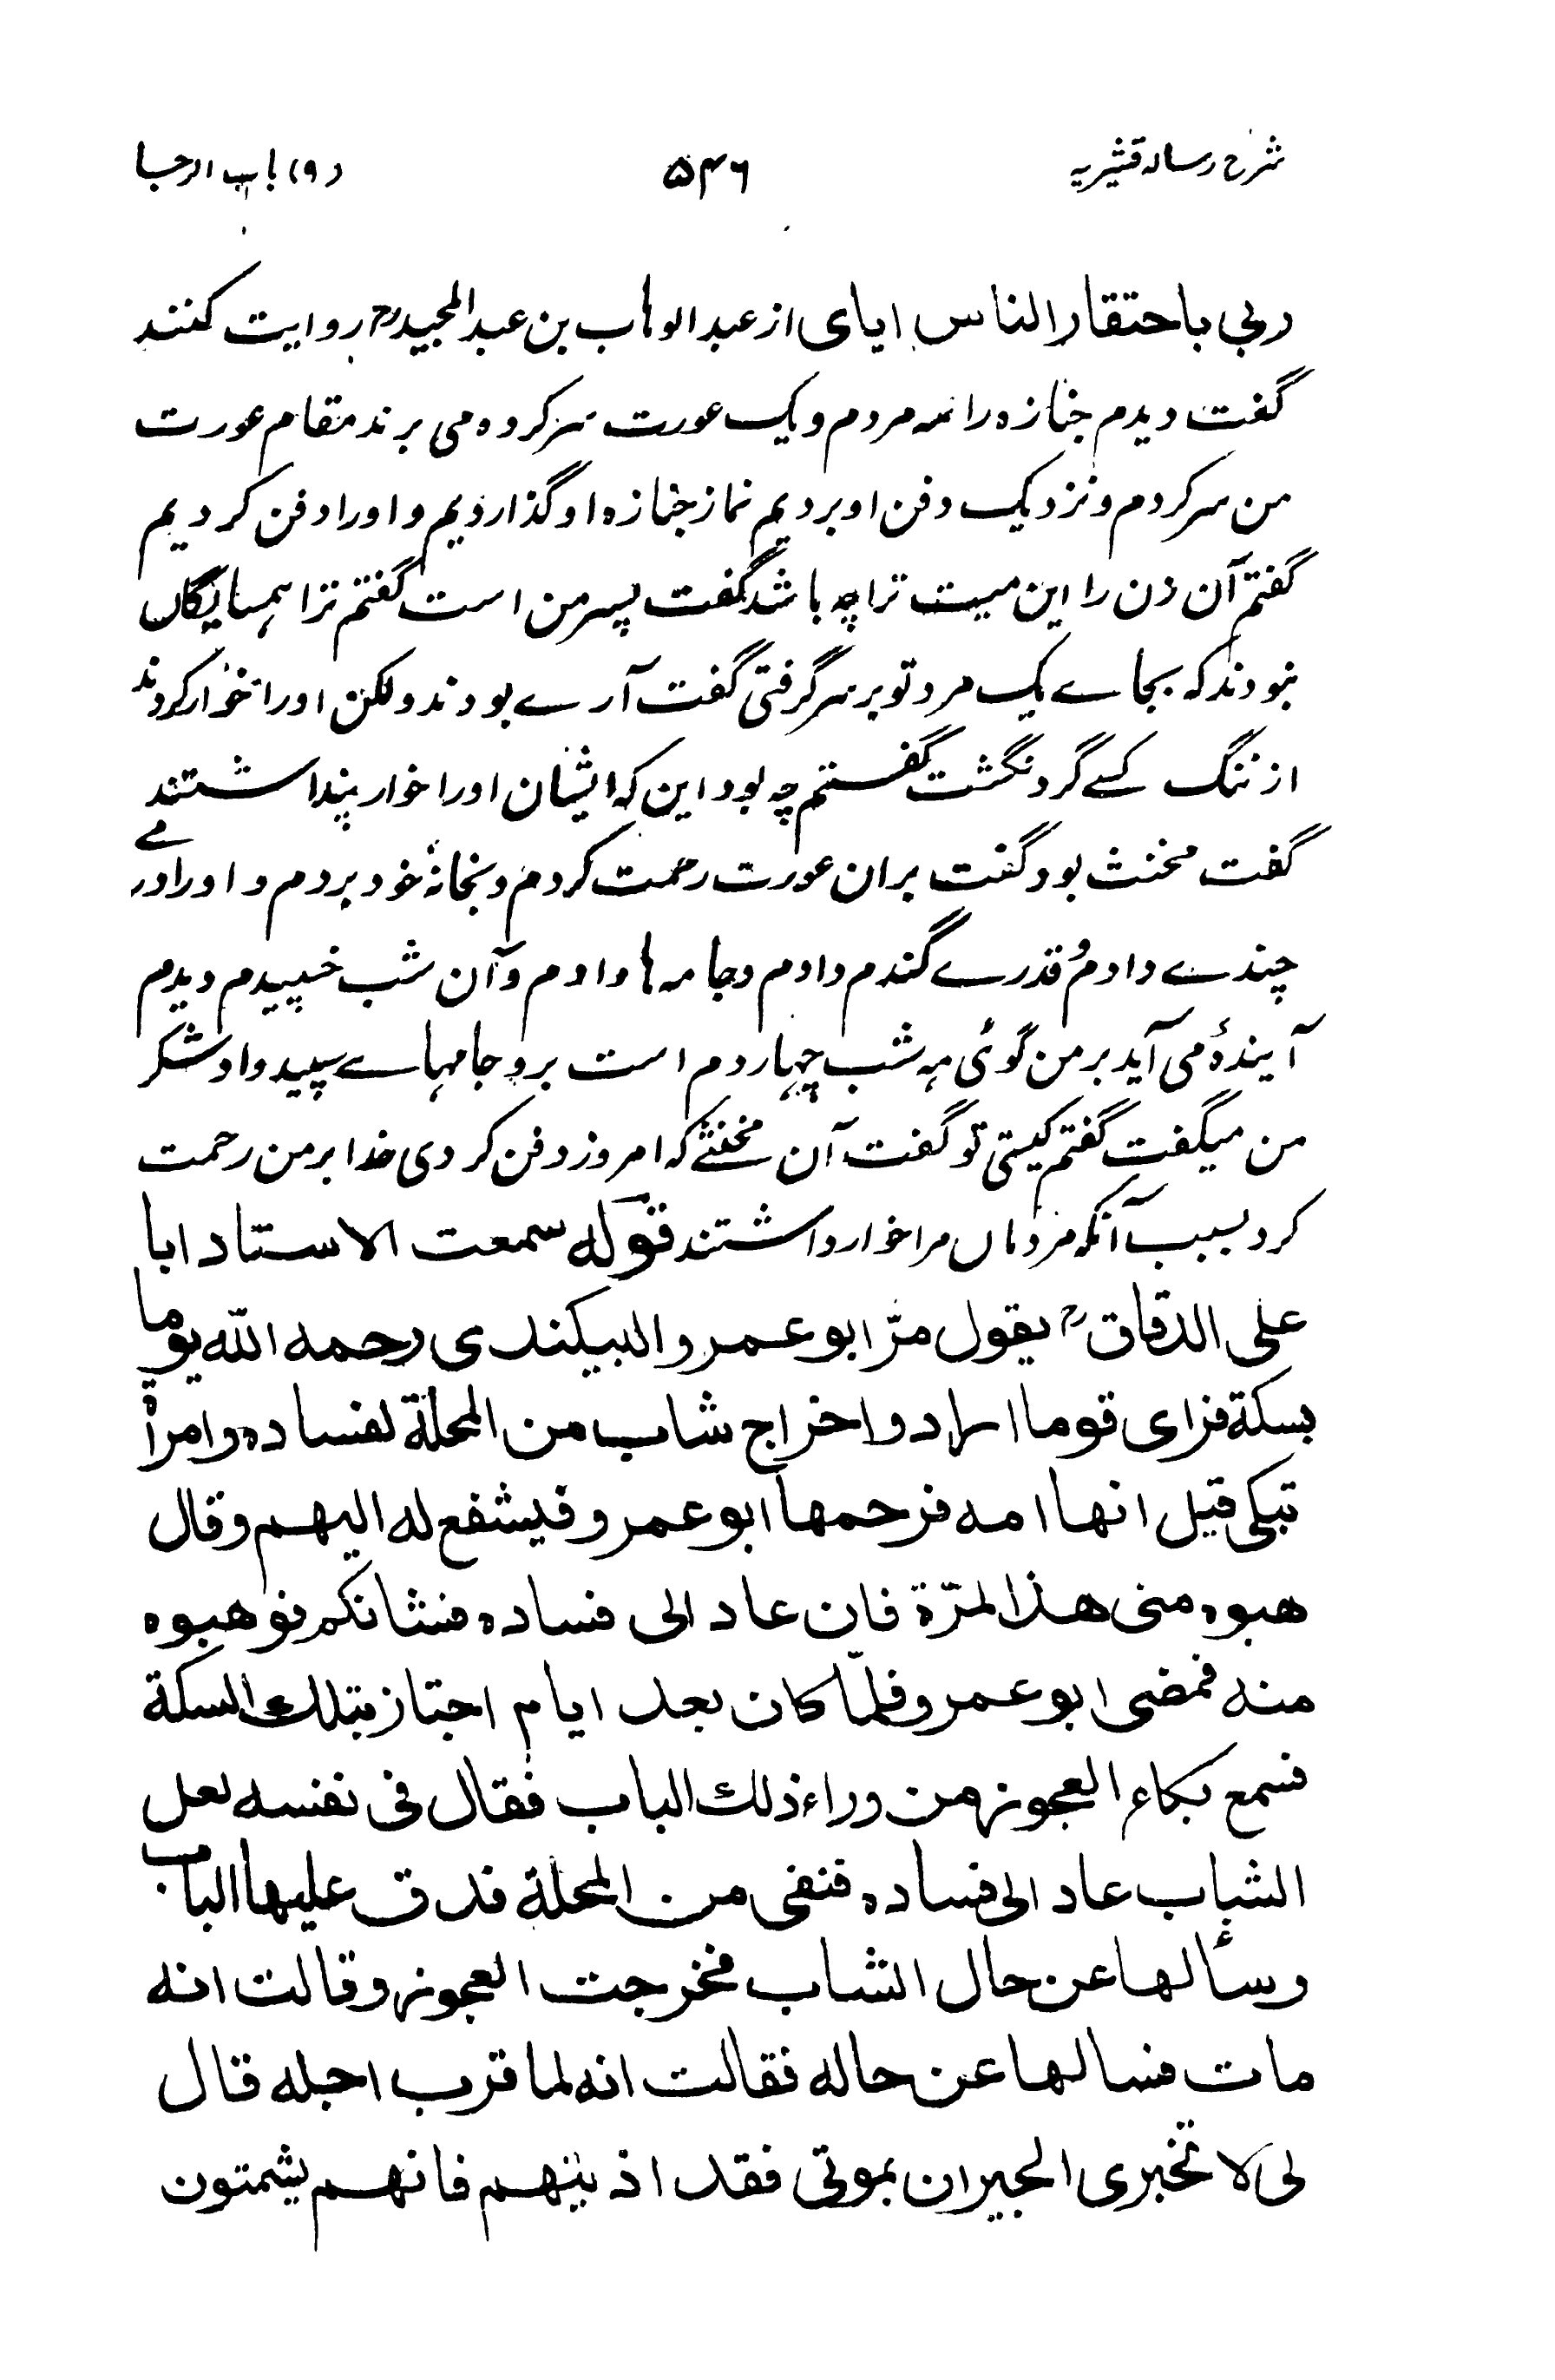 شرح رساله قشیریه
۵۴۶
(۹) باب الرجا
ربی باحتقار الناس ایای از عبد الوهاب بن عبد المجیدؒ روایت کنند
گفت دیدم جنازه را سه مردم و یک عورت سر کرده می برند مقام عورت
من سر کردم و نزدیک دفن او بردیم نماز جنازه او گذاردیم و او را دفن کردیم
گفتم آن زن را این میت ترا چه باشد گفت پسر من است گفتم ترا همسایگاں
نبودند که بجاے یک مرد تو بر سر گرفتی گفت آرے بودند ولکن او را خوار کردند
از ننگ کسے گرد نگشت گفتم چه بود این که ایشان او را خوار پنداشتند
گفت مخنث بود گفت بران عورت رحمت کردم و بخانهٔ خود بردم و او را درمے
چندے دادم و قدرے گندم دادم و جامه ها دادم و آن شب خسپیدم دیدم
آیندهٔ می آید بر من گوئی مه شب چهاردم است برو جامهاے سپید و او شکر
من میگفت گفتم کیستی تو گفت آن مخنثے که امروز دفن کردی خدا بر من رحمت
کرد بسبب آنکه مردماں مرا خوار داشتند قوله سمعت الاستاد ابا
علی الدقاقؒ یقول مرّ ابو عمرو البیکندی رحمه الله یوما
بسکة فرای قوما ارادوا اخراج شاب من المحلة لفساده وامراة
تبکی قیل انها امه فرحمها ابو عمرو فیشفع له الیهم وقال
هبوه منی هذا المرّة فان عاد الی فساده فشانکم فوهبوه
منه فمضی ابو عمرو فلمّا کان بعد ایام اجتاز بتلك السکة
فسمع بکاء العجوز من وراء ذلك الباب فقال فی نفسه لعل
الشاب عاد الی فساده فنفی من المحلة فدق علیها الباب
وسألها عن حال الشاب فخرجت العجوز وقالت انه
مات فسالها عن حاله فقالت انه لما قرب اجله قال
لی لا تخبری الجیران بموتی فقد اذیتهم فانهم یشمتون